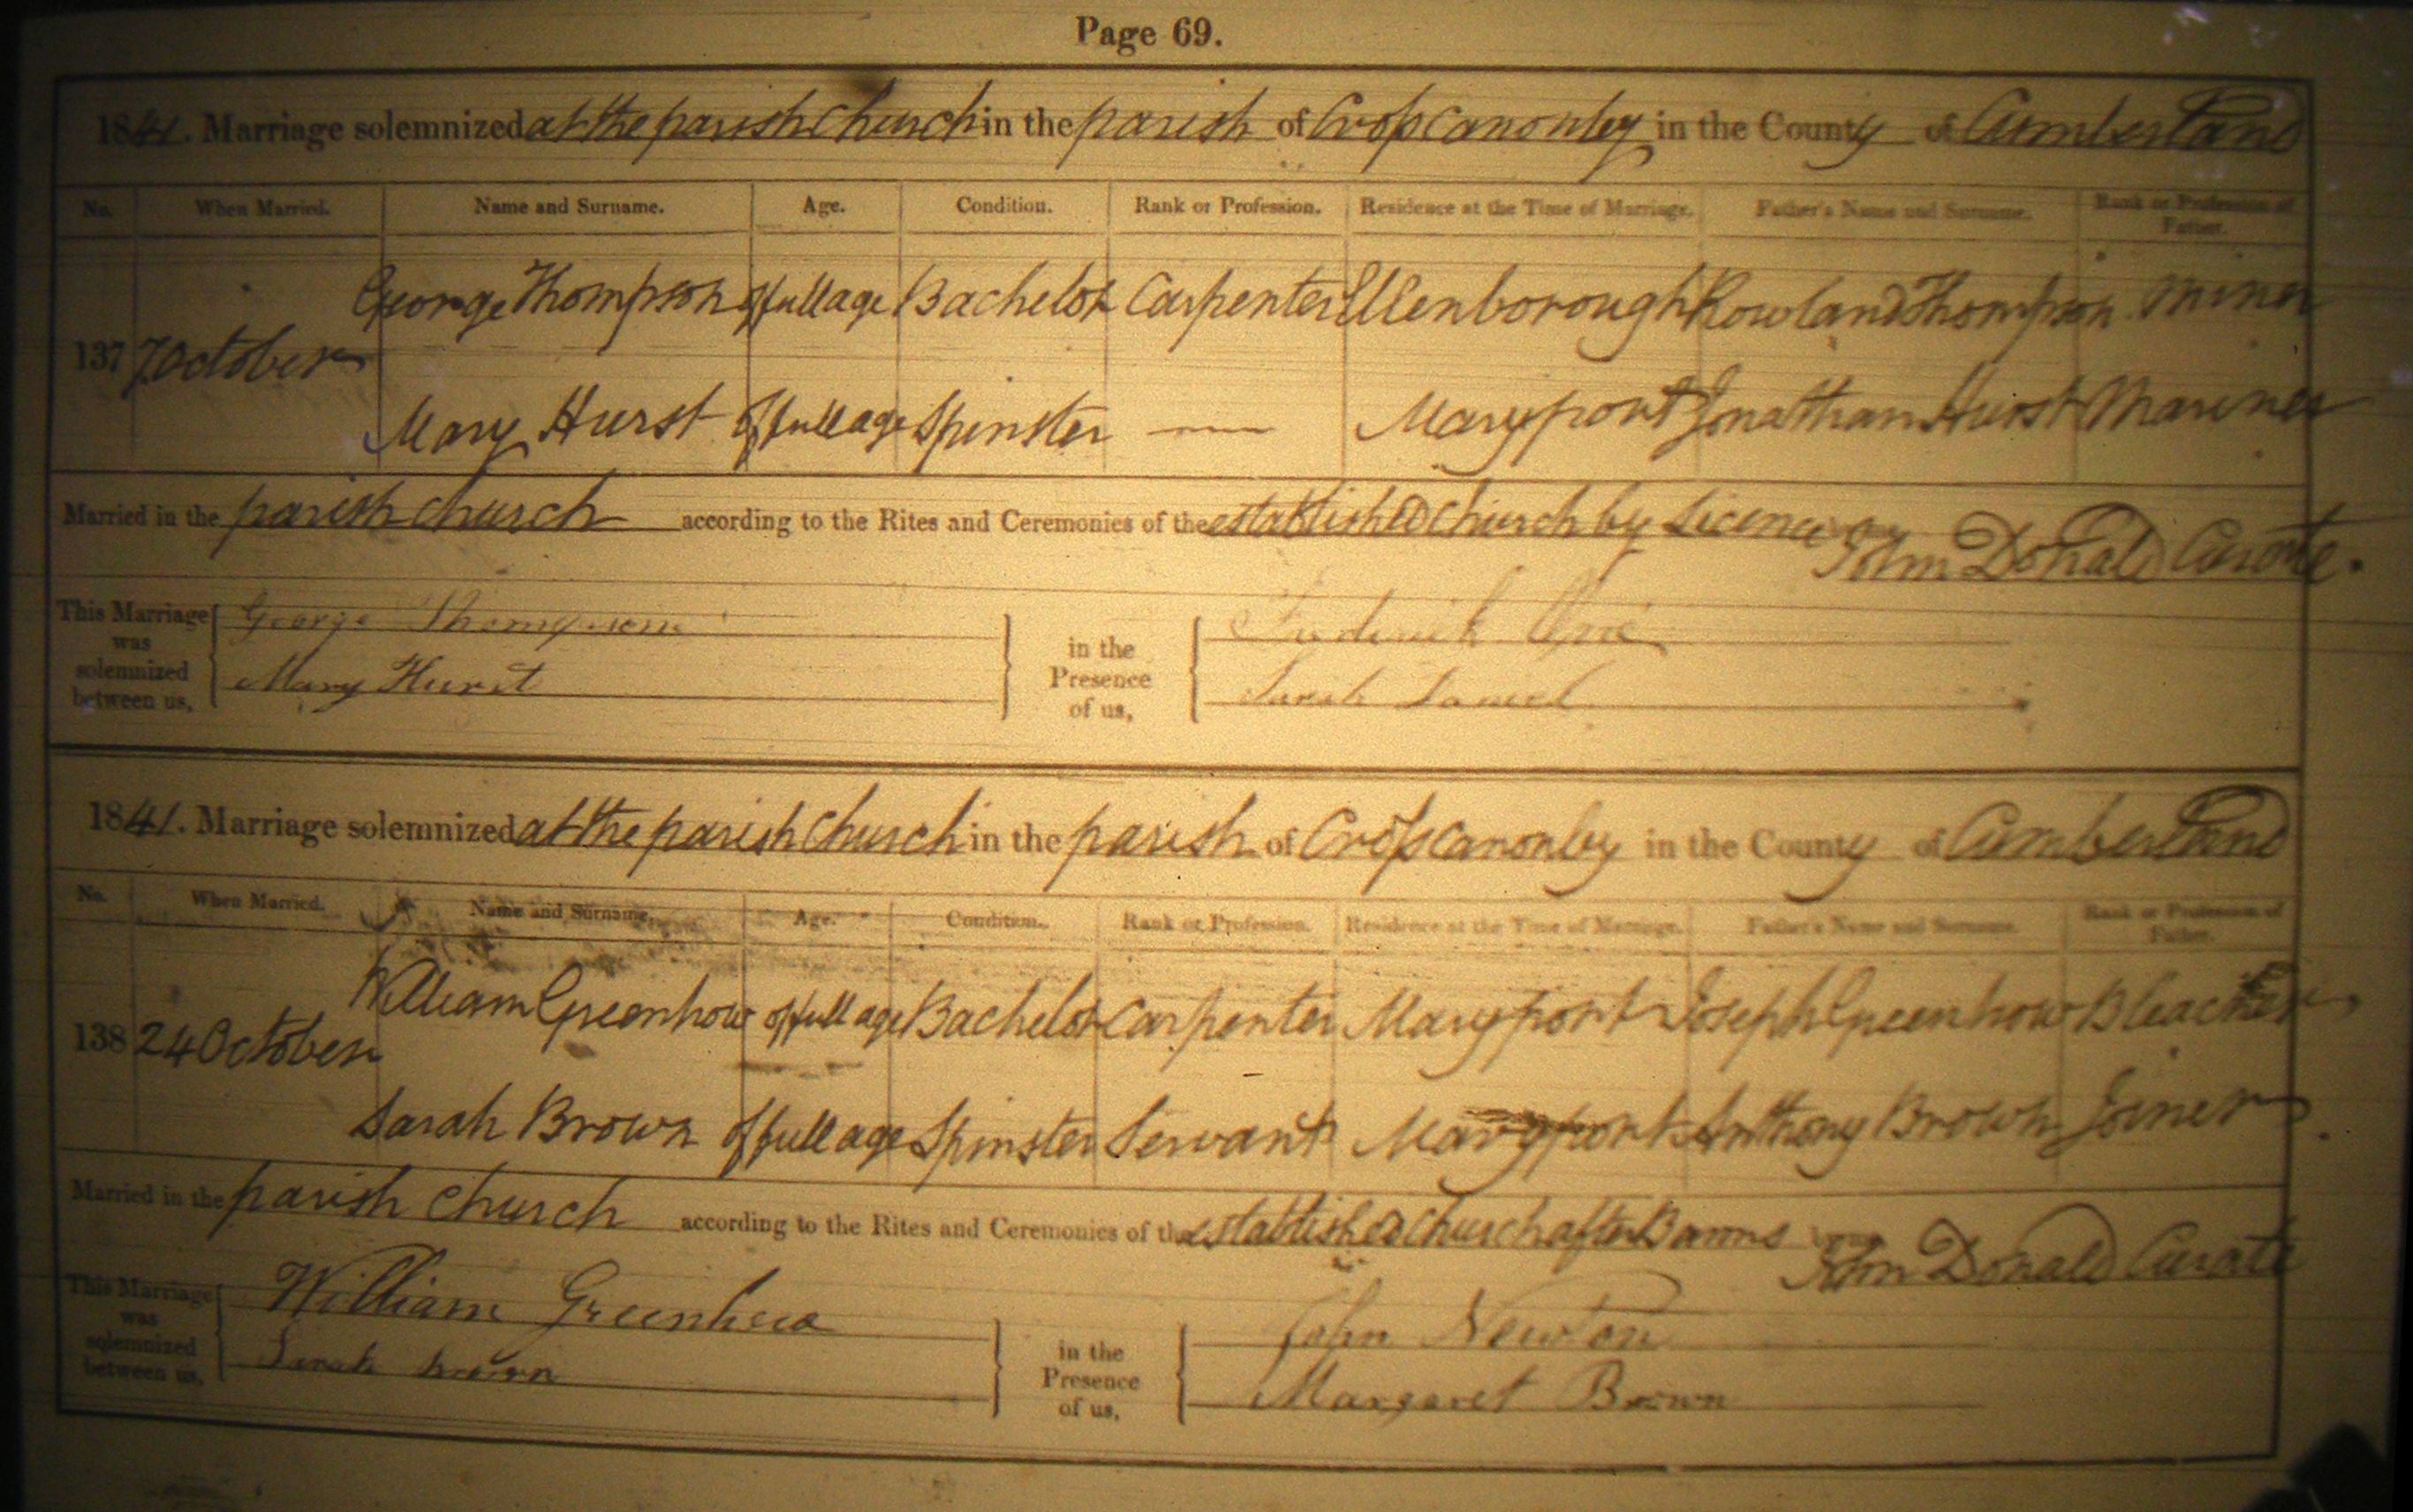 Page 69.
1841. Marriage solemnized at the parish Church in the parish of Crosscanonby in the County of Cumberland
No. When Married. Name and Surname. Age. Condition. Rank or Profession. Residence at the Time of Marriage. Father's Name and Surname. Rank or Profession of Father.
George Thompson of full age Bachelor Carpenter Ellenborough Rowland Thompson Miner
137 7 October
Mary Hurst of full age Spinster — Maryport Jonathan Hurst Mariner
Married in the parish church according to the Rites and Ceremonies of the established Church by Licence
John Donald Curate.
This Marriage was solemnized between us, George Thompson Mary Hurst in the Presence of us, Frederick Sarah
1841. Marriage solemnized at the parish Church in the parish of Crosscanonby in the County of Cumberland
No. When Married. Name and Surname. Age. Condition. Rank or Profession. Residence at the Time of Marriage. Father's Name and Surname. Rank or Profession of Father.
William Greenhow of full age Bachelor Carpenter Maryport Joseph Greenhow Bleacher
138 24 October
Sarah Brown of full age Spinster Servant Maryport Anthony Brown Joiner
Married in the parish church according to the Rites and Ceremonies of the established Church after Banns
John Donald Curate
This Marriage was solemnized between us, William Greenhow Sarah Brown in the Presence of us, John Newton Margaret Brown